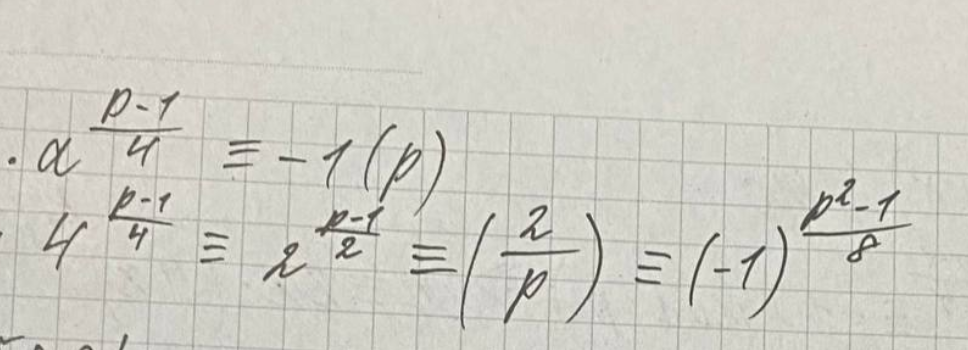 . a^{\frac{p-1}{4}} ≡ -1 (p)
4^{\frac{p-1}{4}} ≡ 2^{\frac{p-1}{2}} ≡ (\frac{2}{p}) ≡ (-1)^{\frac{p^2-1}{8}}